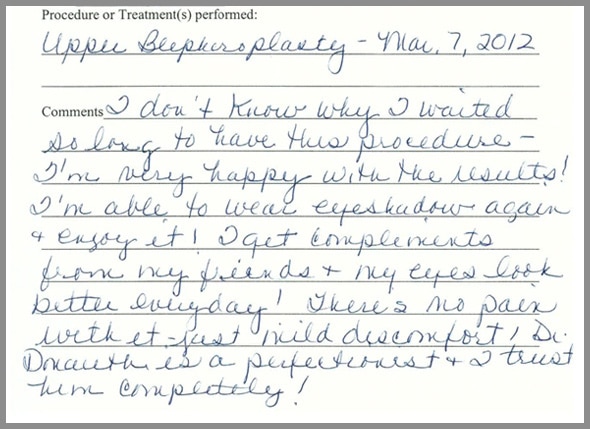 Procedure or Treatment(s) performed:
Upper Blepharoplasty - Mar. 7, 2012
Comments I don't know why I waited
so long to have this procedure -
I'm very happy with the results!
I'm able to wear eyeshadow again
+ enjoy it! I get complements
from my friends + my eyes look
better everyday! There's no pain
with it - just mild discomfort! Dr.
is a perfectionist + I trust
him completely!